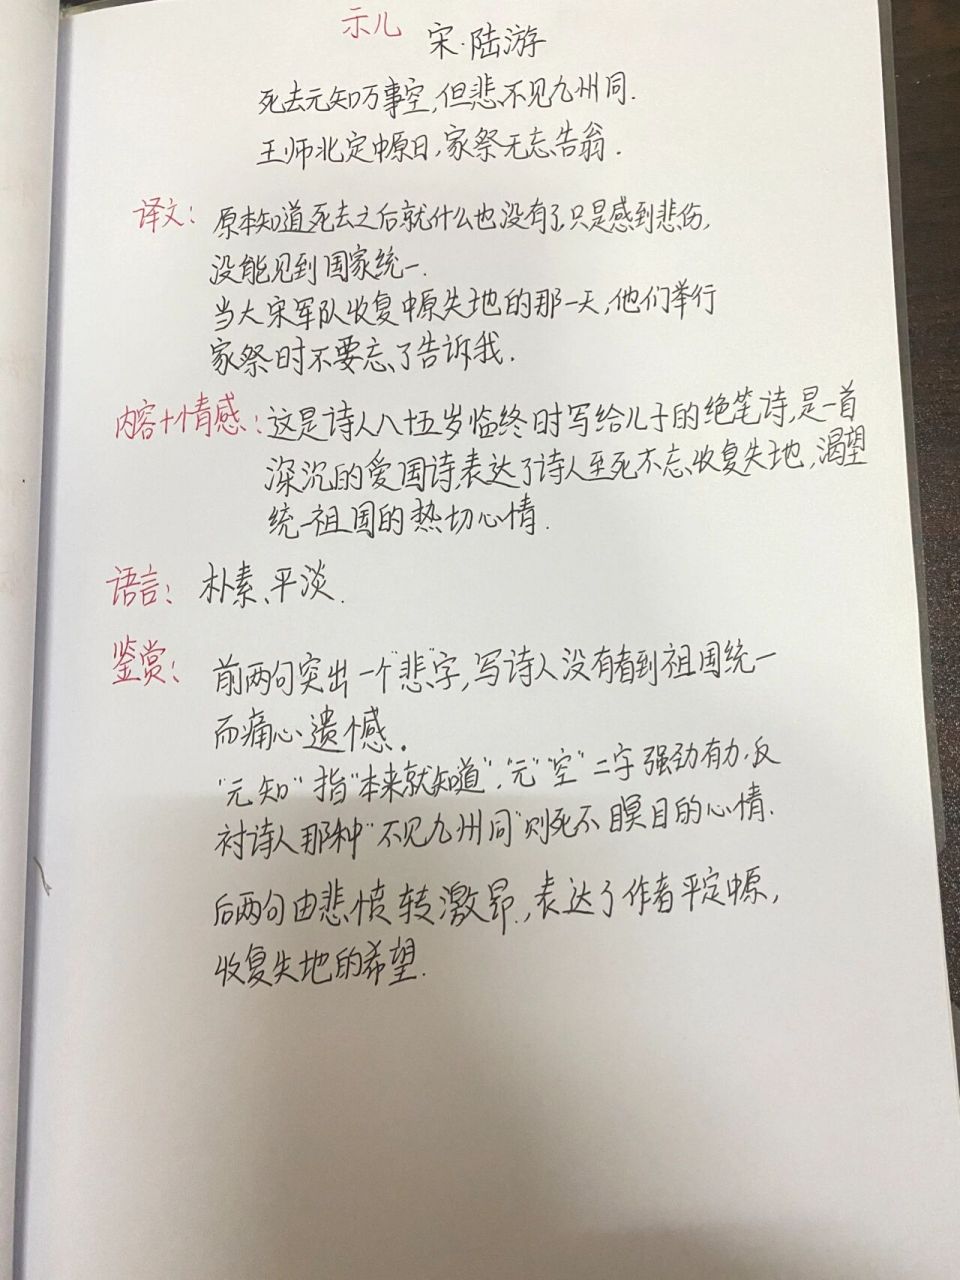 示儿 宋·陆游
死去元知万事空,但悲不见九州同.
王师北定中原日,家祭无忘告翁.
译文: 原本知道死去之后就什么也没有了,只是感到悲伤,
没能见到国家统一.
当大宋军队收复中原失地的那一天,他们举行
家祭时不要忘了告诉我.
内容+情感: 这是诗人八十五岁临终时写给儿子的绝笔诗,是一首
深沉的爱国诗,表达了诗人至死不忘收复失地,渴望
统一祖国的热切心情.
语言: 朴素、平淡.
鉴赏: 前两句突出一个"悲"字,写诗人没有看到祖国统一
而痛心遗憾.
"元知"指"本来就知道","元""空"二字强劲有力.反
衬诗人那种"不见九州同"则死不瞑目的心情.
后两句由悲愤转激昂,表达了作者平定中原,
收复失地的希望.